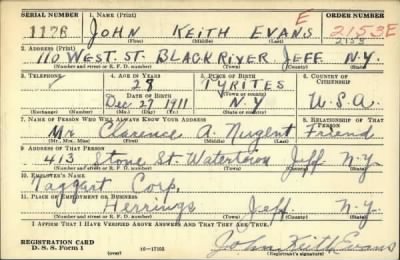 SERIAL NUMBER 1. NAME (Print) ORDER NUMBER
1178 JOHN KEITH EVANS E 2153E
(First) (Middle) (Last) 2153
2. ADDRESS (Print)
110 WEST. ST. BLACK RIVER JEFF N.Y.
(Number and street or R. F. D. number) (Town) (County) (State)
3. TELEPHONE 4. AGE IN YEARS 5. PLACE OF BIRTH 6. COUNTRY OF CITIZENSHIP
28 TYRITES
DATE OF BIRTH (Town or county)
Dec 27 1911 N.Y U.S.A.
(Exchange) (Number) (Mo.) (Day) (Yr.) (State or country)
7. NAME OF PERSON WHO WILL ALWAYS KNOW YOUR ADDRESS 8. RELATIONSHIP OF THAT PERSON
Mr Clarence A. Nugent Friend
(Mr., Mrs., Miss) (First) (Middle) (Last)
9. ADDRESS OF THAT PERSON
413 Stone St. Watertown Jeff N.Y.
(Number and street or R. F. D. number) (Town) (County) (State)
10. EMPLOYER'S NAME
Taggart Corp.
11. PLACE OF EMPLOYMENT OR BUSINESS
Herrings Jeff. N.Y.
(Number and street or R. F. D. number) (Town) (County) (State)
I AFFIRM THAT I HAVE VERIFIED ABOVE ANSWERS AND THAT THEY ARE TRUE.
REGISTRATION CARD John Keith Evans
D. S. S. Form 1 (over) 16-17105 (Registrant's signature)